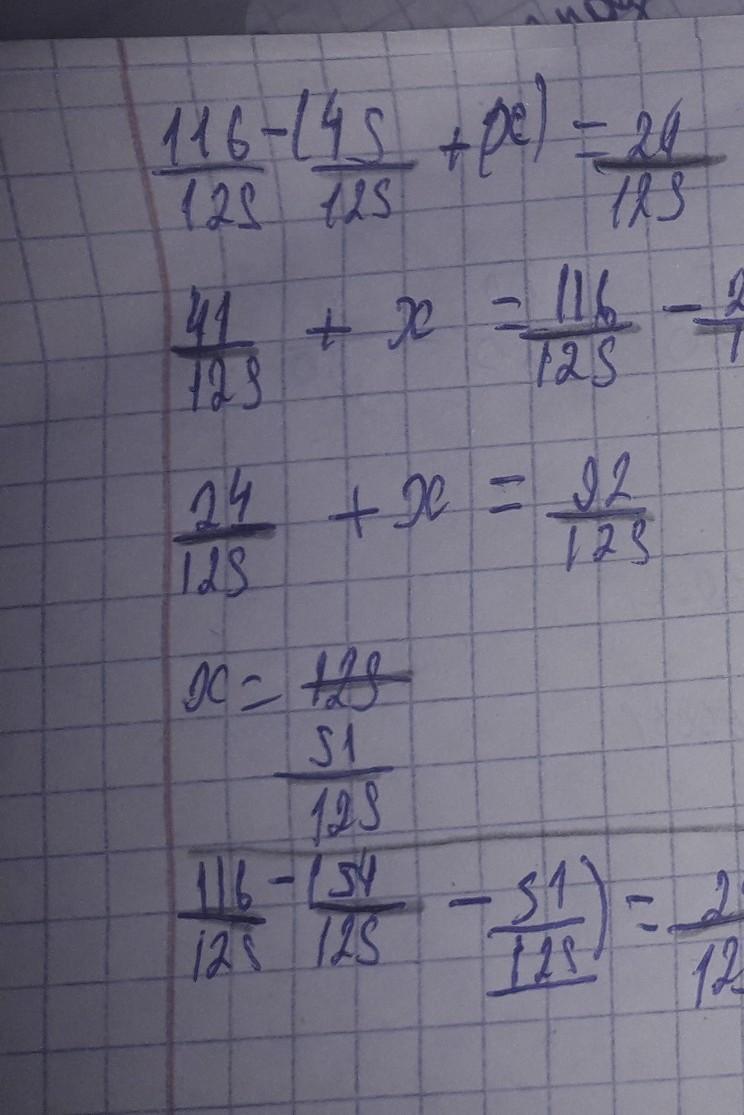 116/125 - (45/125 + x) = 24/125
41/125 + x = 116/125 - 2
24/125 + x = 92/125
x = 125
51/125
116/125 - (54/125 - 51/125) = 2/12